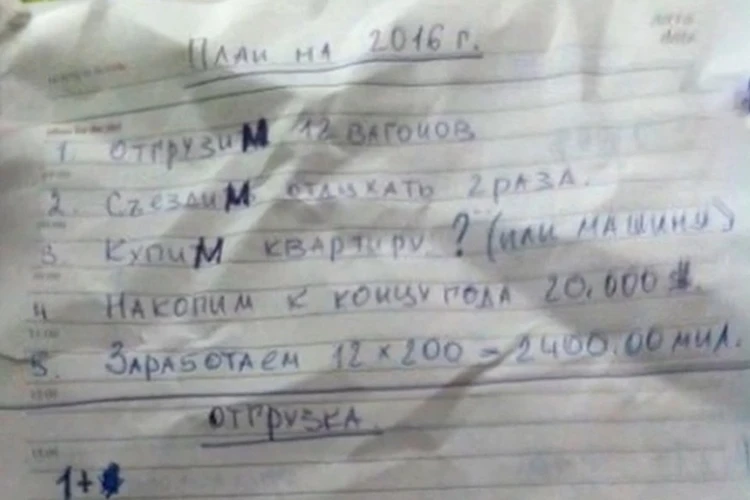 План на 2016 г.
1. Отгрузим 12 вагонов
2. Съездим отдыхать 2 раза.
3. Купим квартиру ? (или машину)
4 Накопим к концу года 20.000 $.
5. Заработаем 12 × 200 = 2400.00 мил.
Отгрузка
1+